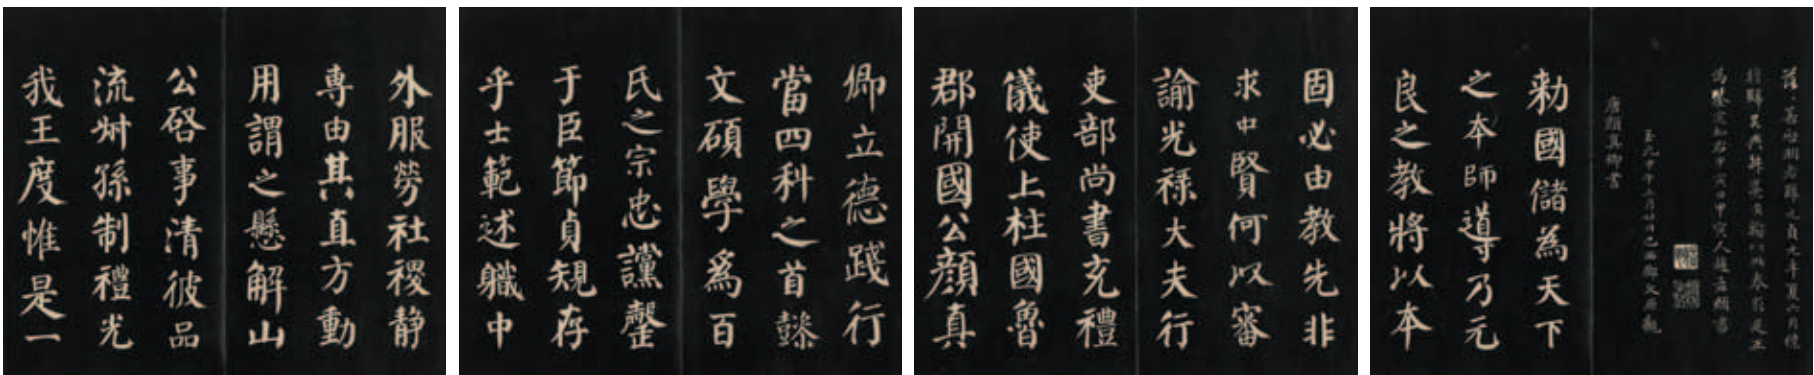 至元甲午六月廿日巴西鄧文原觀
唐顏真卿書
勑國儲為天下
之本師導乃元
良之教將以本
固必由教先非
求中賢何以審
諭光祿大夫行
吏部尚書充禮
儀使上柱國魯
郡開國公顏真
卿立德踐行
當四科之首懿
文碩學為百
氏之宗忠讜罄
于臣節貞規存
乎士範述職中
外服勞社稷靜
專由其直方動
用謂之懸解山
公啓事清彼品
流叔孫制禮光
我王度惟是一